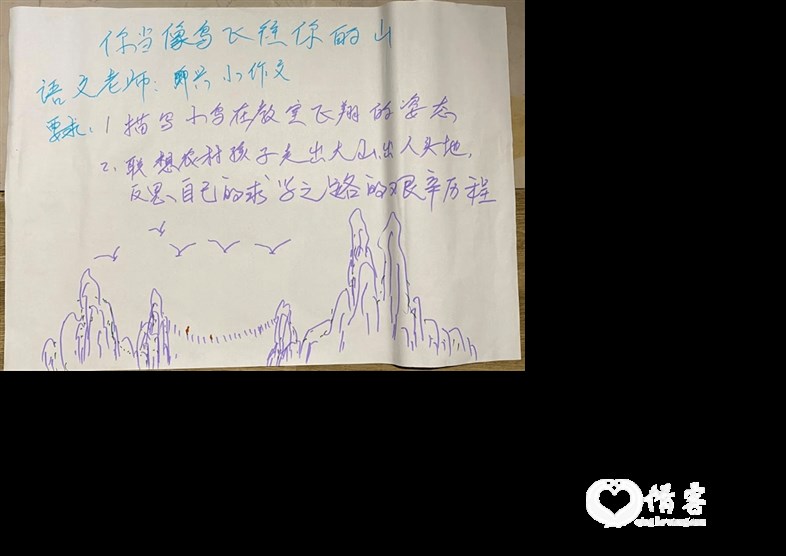 你当像鸟飞往你的山
语文老师：即兴小作文
要求：1描写小鸟在教室飞翔的姿态
2、联想农村孩子走出大山出人头地，
反思自己的求学之路的艰辛历程
惜客